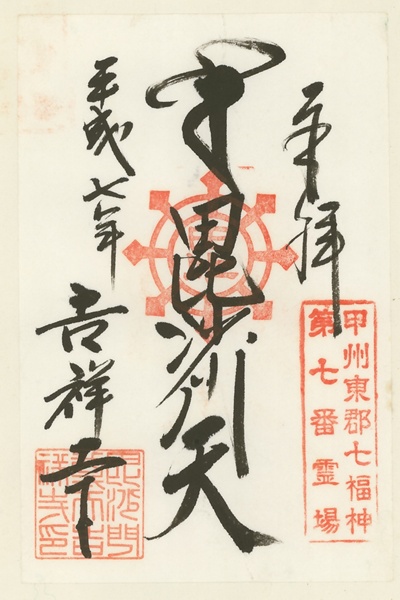 奉拝
甲州東郡七福神
第七番霊場
毘沙門天
平成七年
吉祥寺